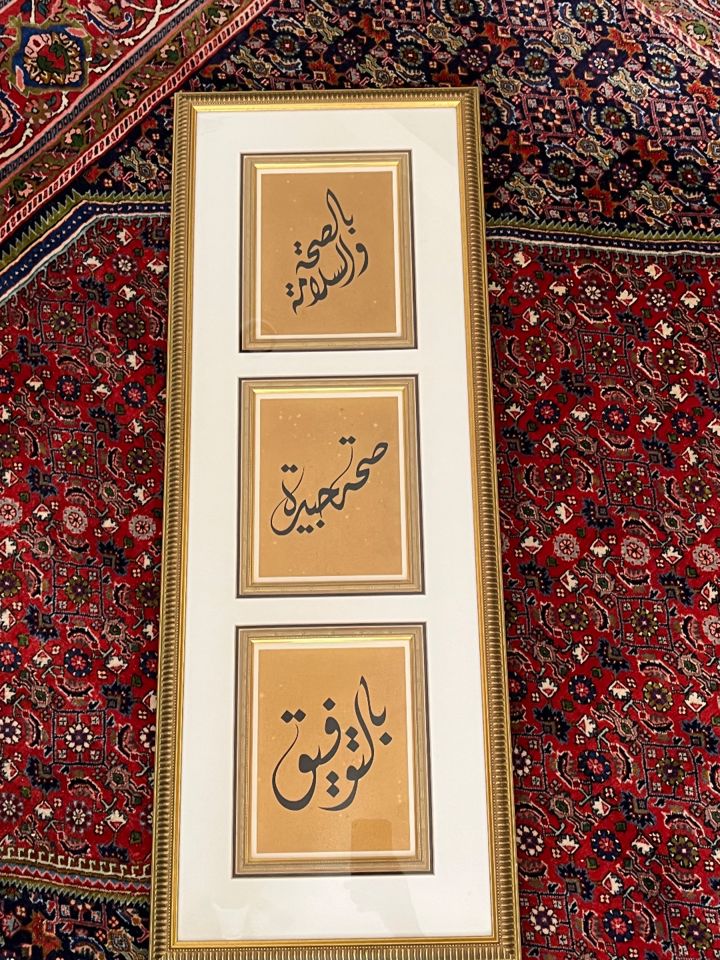 بالصحة
والسلامة
صحة جيدة
بالتوفيق